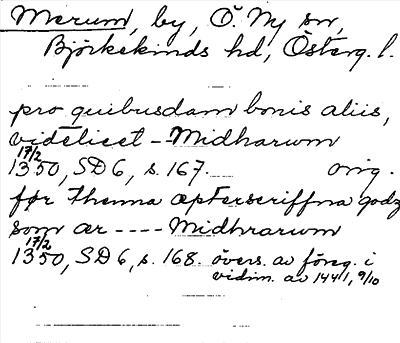 Merum, by, Ö. Ny sn,
Björkekinds hd, Österg. l.
pro quibusdam bonis aliis,
videlicet - Midharum
17/2
1350, SD 6, s. 167. orig.
før thenna æpterscriffna godz
som ær ---- Midhrarum
17/2
1350, SD 6, s. 168. övers. av föreg. i
vidim. av 1441, 9/10